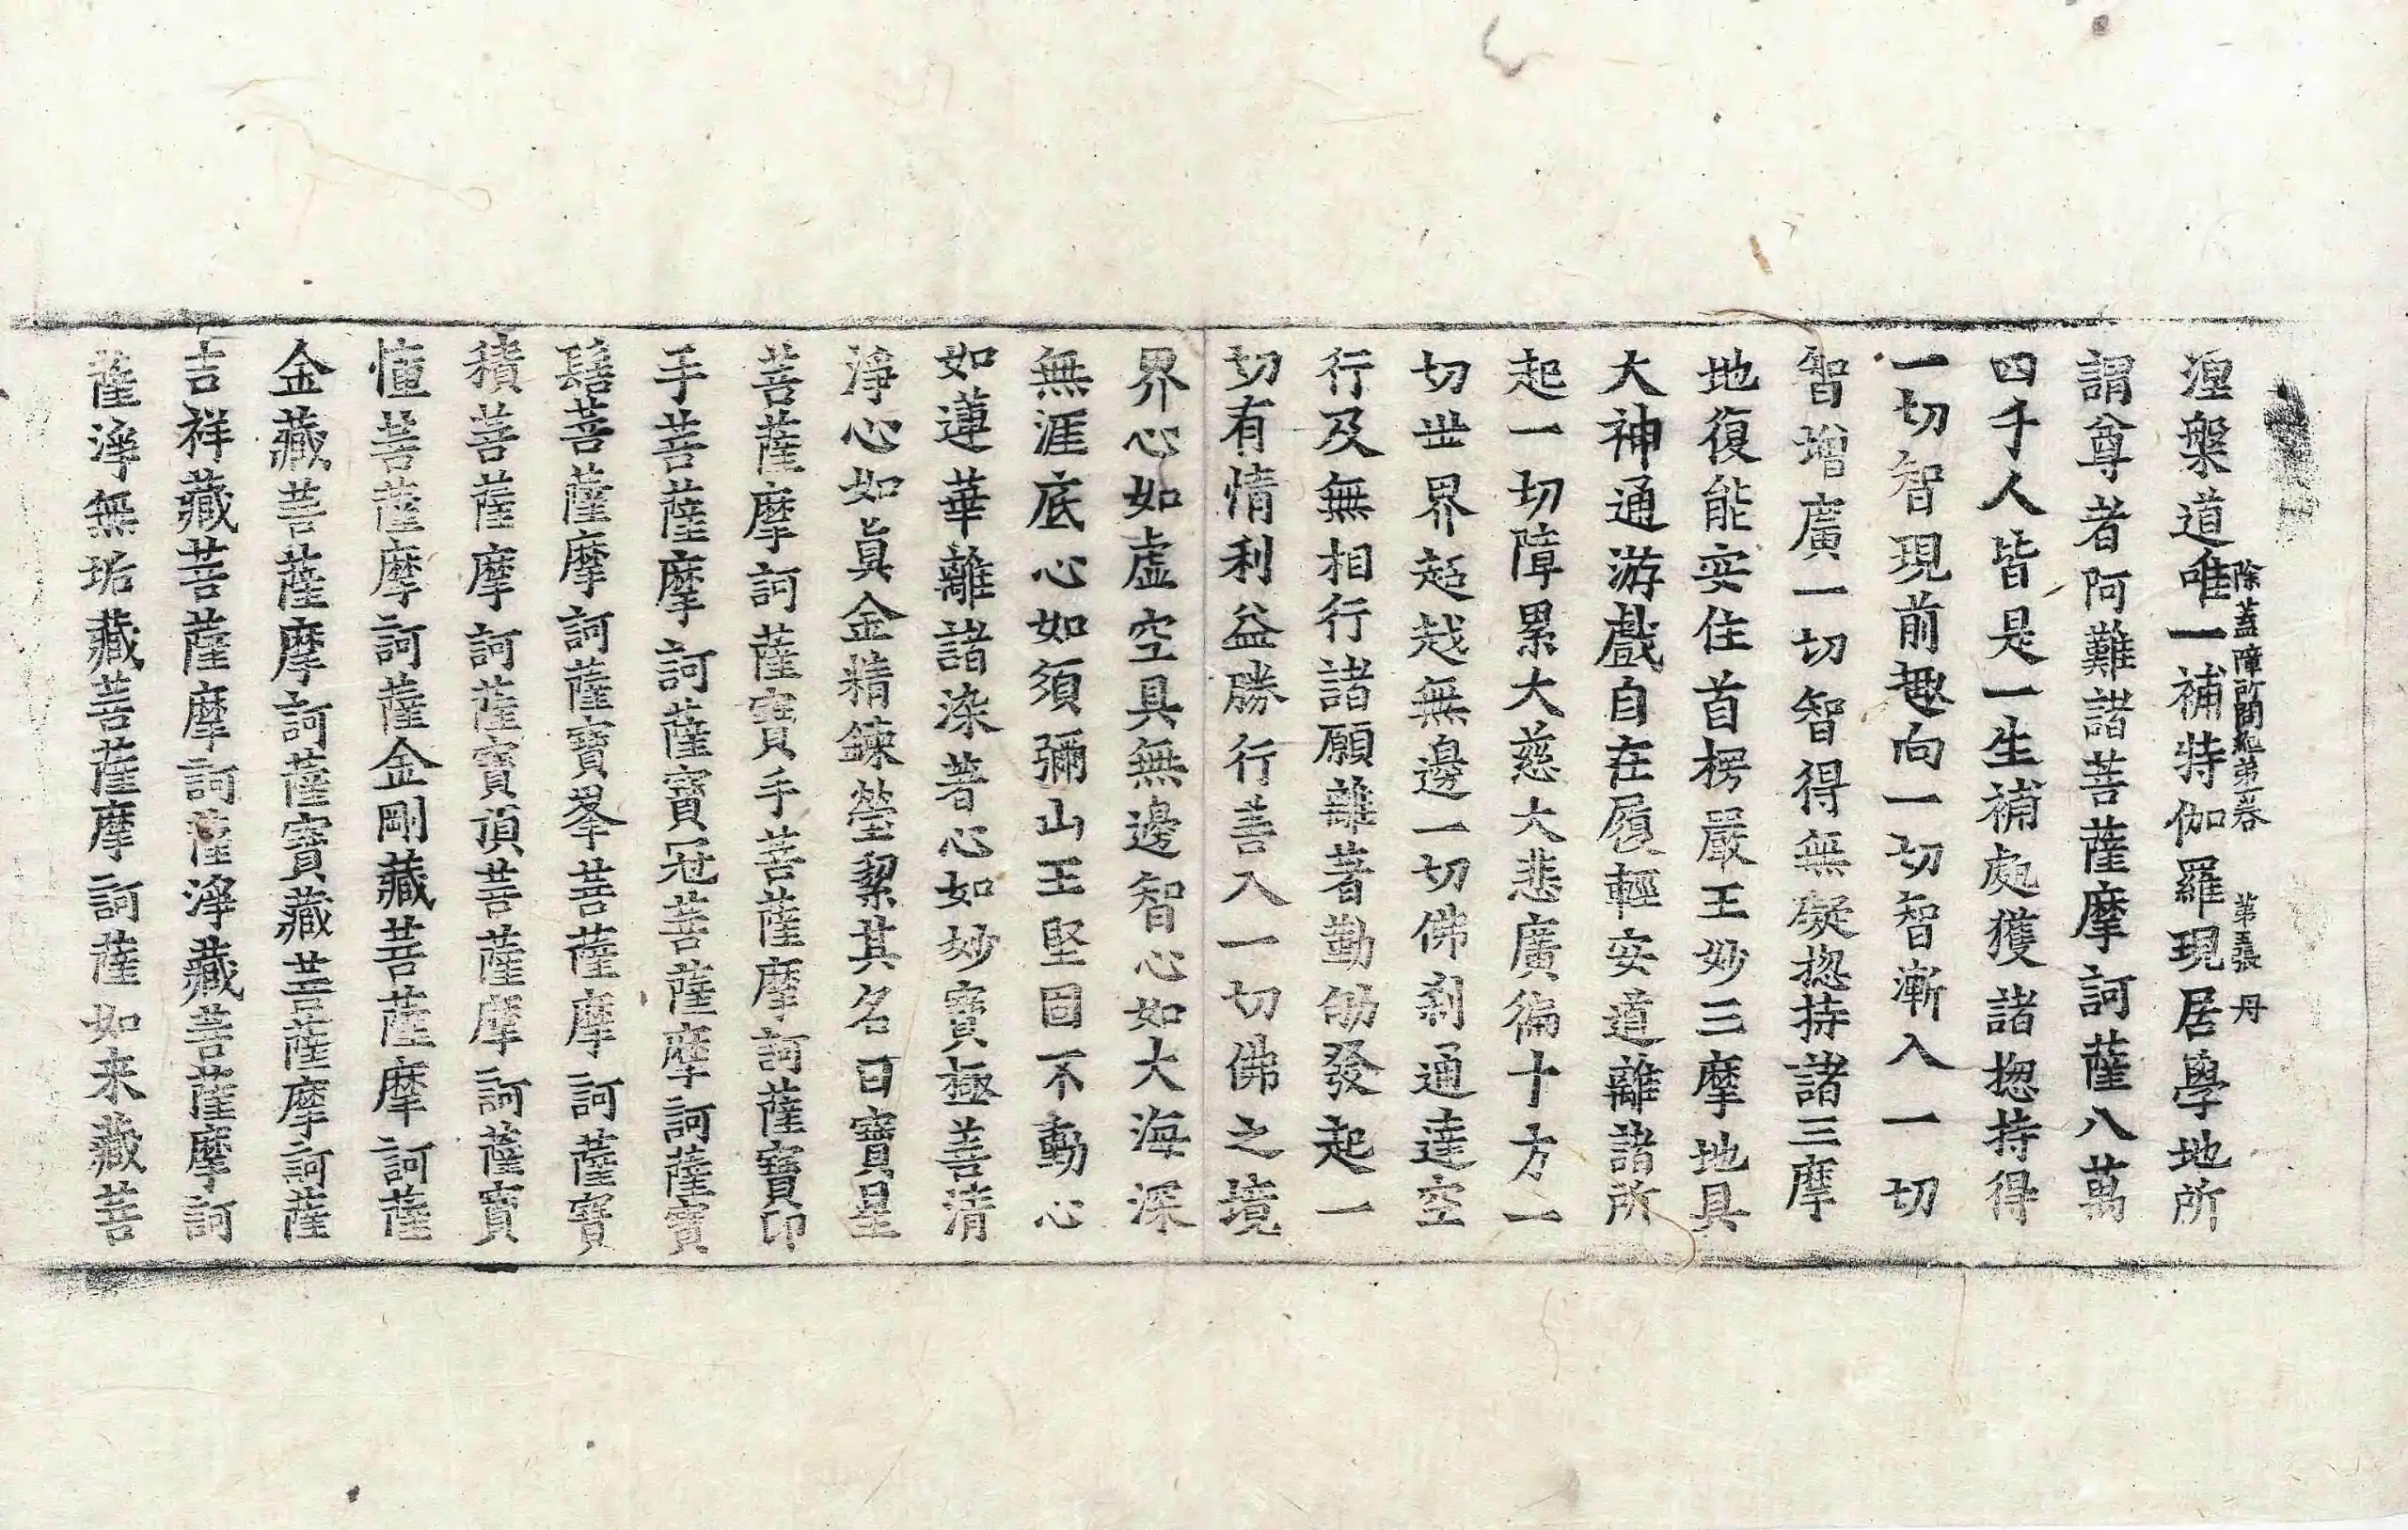 除蓋障所問經第一卷 第五張 丹
涅槃道唯一補特伽羅現居學地所
謂尊者阿難諸菩薩摩訶薩八萬
四千人皆是一生補處獲諸揔持得
一切智現前趣向一切智漸入一切
智增廣一切智得無礙揔持諸三摩
地復能安住首楞嚴王妙三摩地具
大神通游戲自在履輕安道離諸所
起一切障累大慈大悲廣徧十方一
切世界超越無邊一切佛剎通達空
行及無相行諸願離著勤劬發起一
切有情利益勝行善入一切佛之境
界心如虛空具無邊智心如大海深
無涯底心如須彌山王堅固不動心
如蓮華離諸染著心如妙寶極善清
淨心如眞金精鍊瑩絜其名曰寶星
菩薩摩訶薩寶手菩薩摩訶薩寶印
手菩薩摩訶薩寶冠菩薩摩訶薩寶
髻菩薩摩訶薩寶峯菩薩摩訶薩寶
積菩薩摩訶薩寶頂菩薩摩訶薩寶
幢菩薩摩訶薩金剛藏菩薩摩訶薩
金藏菩薩摩訶薩寶藏菩薩摩訶薩
吉祥藏菩薩摩訶薩淨藏菩薩摩訶
薩淨無垢藏菩薩摩訶薩如来藏菩